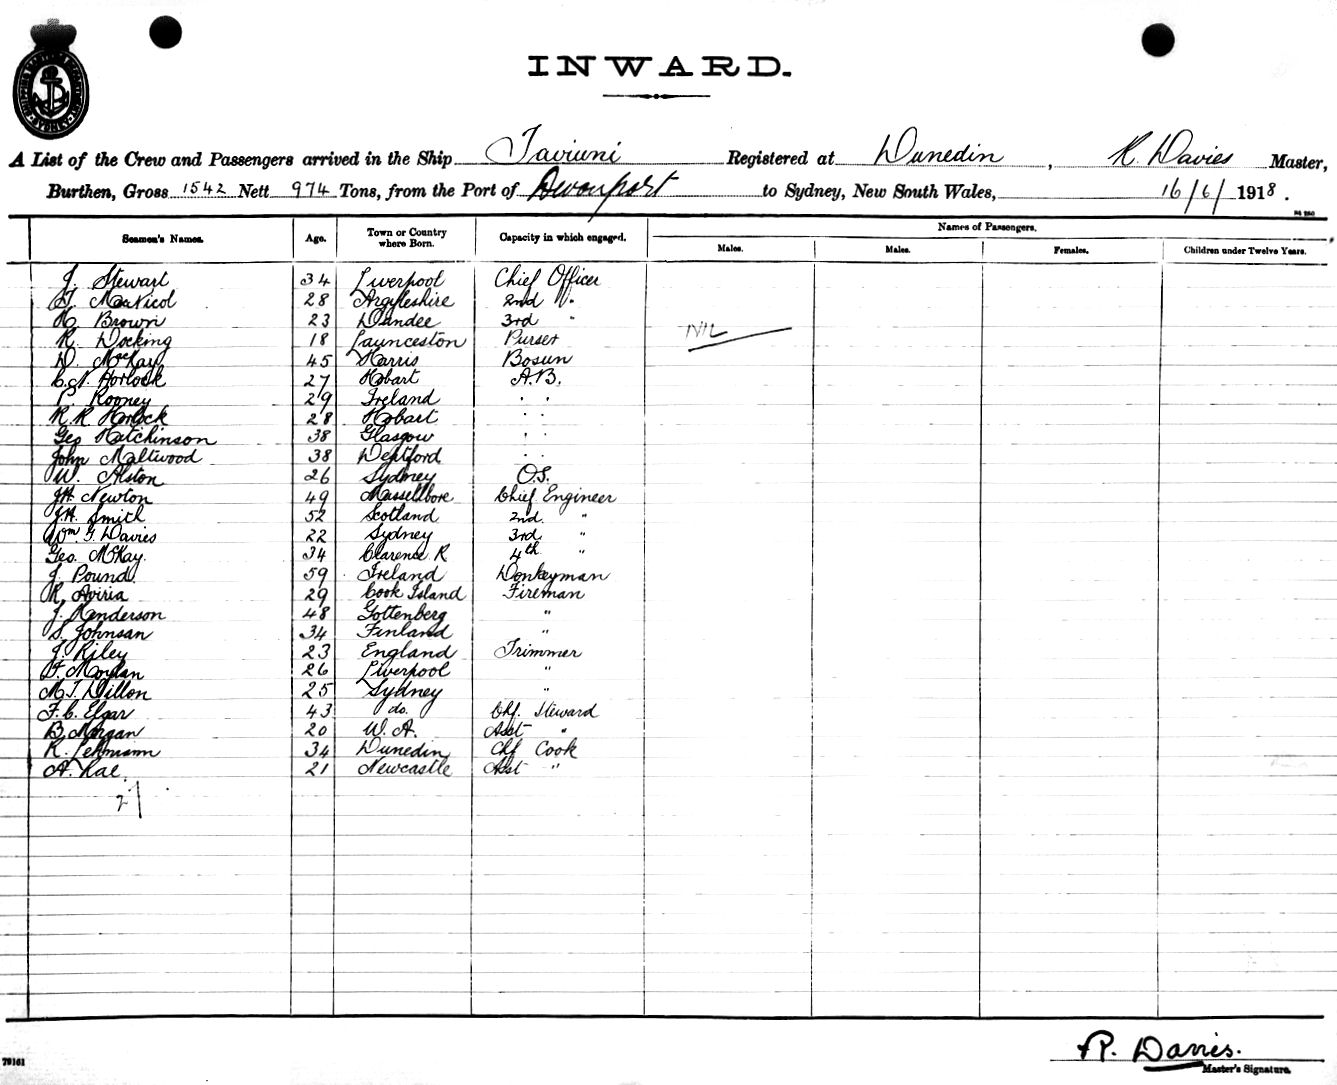 INWARD.
A List of the Crew and Passengers arrived in the Ship Taviuni Registered at Dunedin, R. Davies Master,
Burthen, Gross 1542 Nett 974 Tons, from the Port of Devonport to Sydney, New South Wales, 16/6/1918.
Seamen's Names. Age. Town or Country where Born. Capacity in which engaged. Names of Passengers.
Males. Males. Females. Children under Twelve Years.
J. Stewart 34 Liverpool Chief Officer
MacNicol 28 Argyleshire 2nd "
Brown 23 Dundee 3rd " NIL
R. Docking 18 Launceston Purser
D. MacKay 45 Harris Bosun
C. N. Horlock 27 Hobart A.B.
P. Rooney 29 Ireland " "
R. R Horlock 28 Hobart " "
Geo Hutchinson 38 Glasgow " "
John Maltwood 38 Deptford " "
W. Alston 26 Sydney O.S.
J.H. Newton 49 Chief Engineer
J.H. Smith 52 Scotland 2nd "
Wm G. Davies 22 Sydney 3rd "
Geo. McKay. 34 Clarence R 4th "
J. Pound. 59 Ireland Donkeyman
R. Aviria 29 Cook Island Fireman
J. Henderson 48 Gottenberg "
S. Johnsan 34 Finland "
J. Riley 23 England Trimmer
F. Moylan 26 Liverpool "
M. J. Dillon 25 Sydney "
F. C. Elgar 43 do. Chf. Steward
B. Morgan 20 W. A. Asst "
R. Lehmann 34 Dunedin Chf Cook
A. Rae. 21 Newcastle Asst "
27
R. Davies.
79161 Master's Signature.